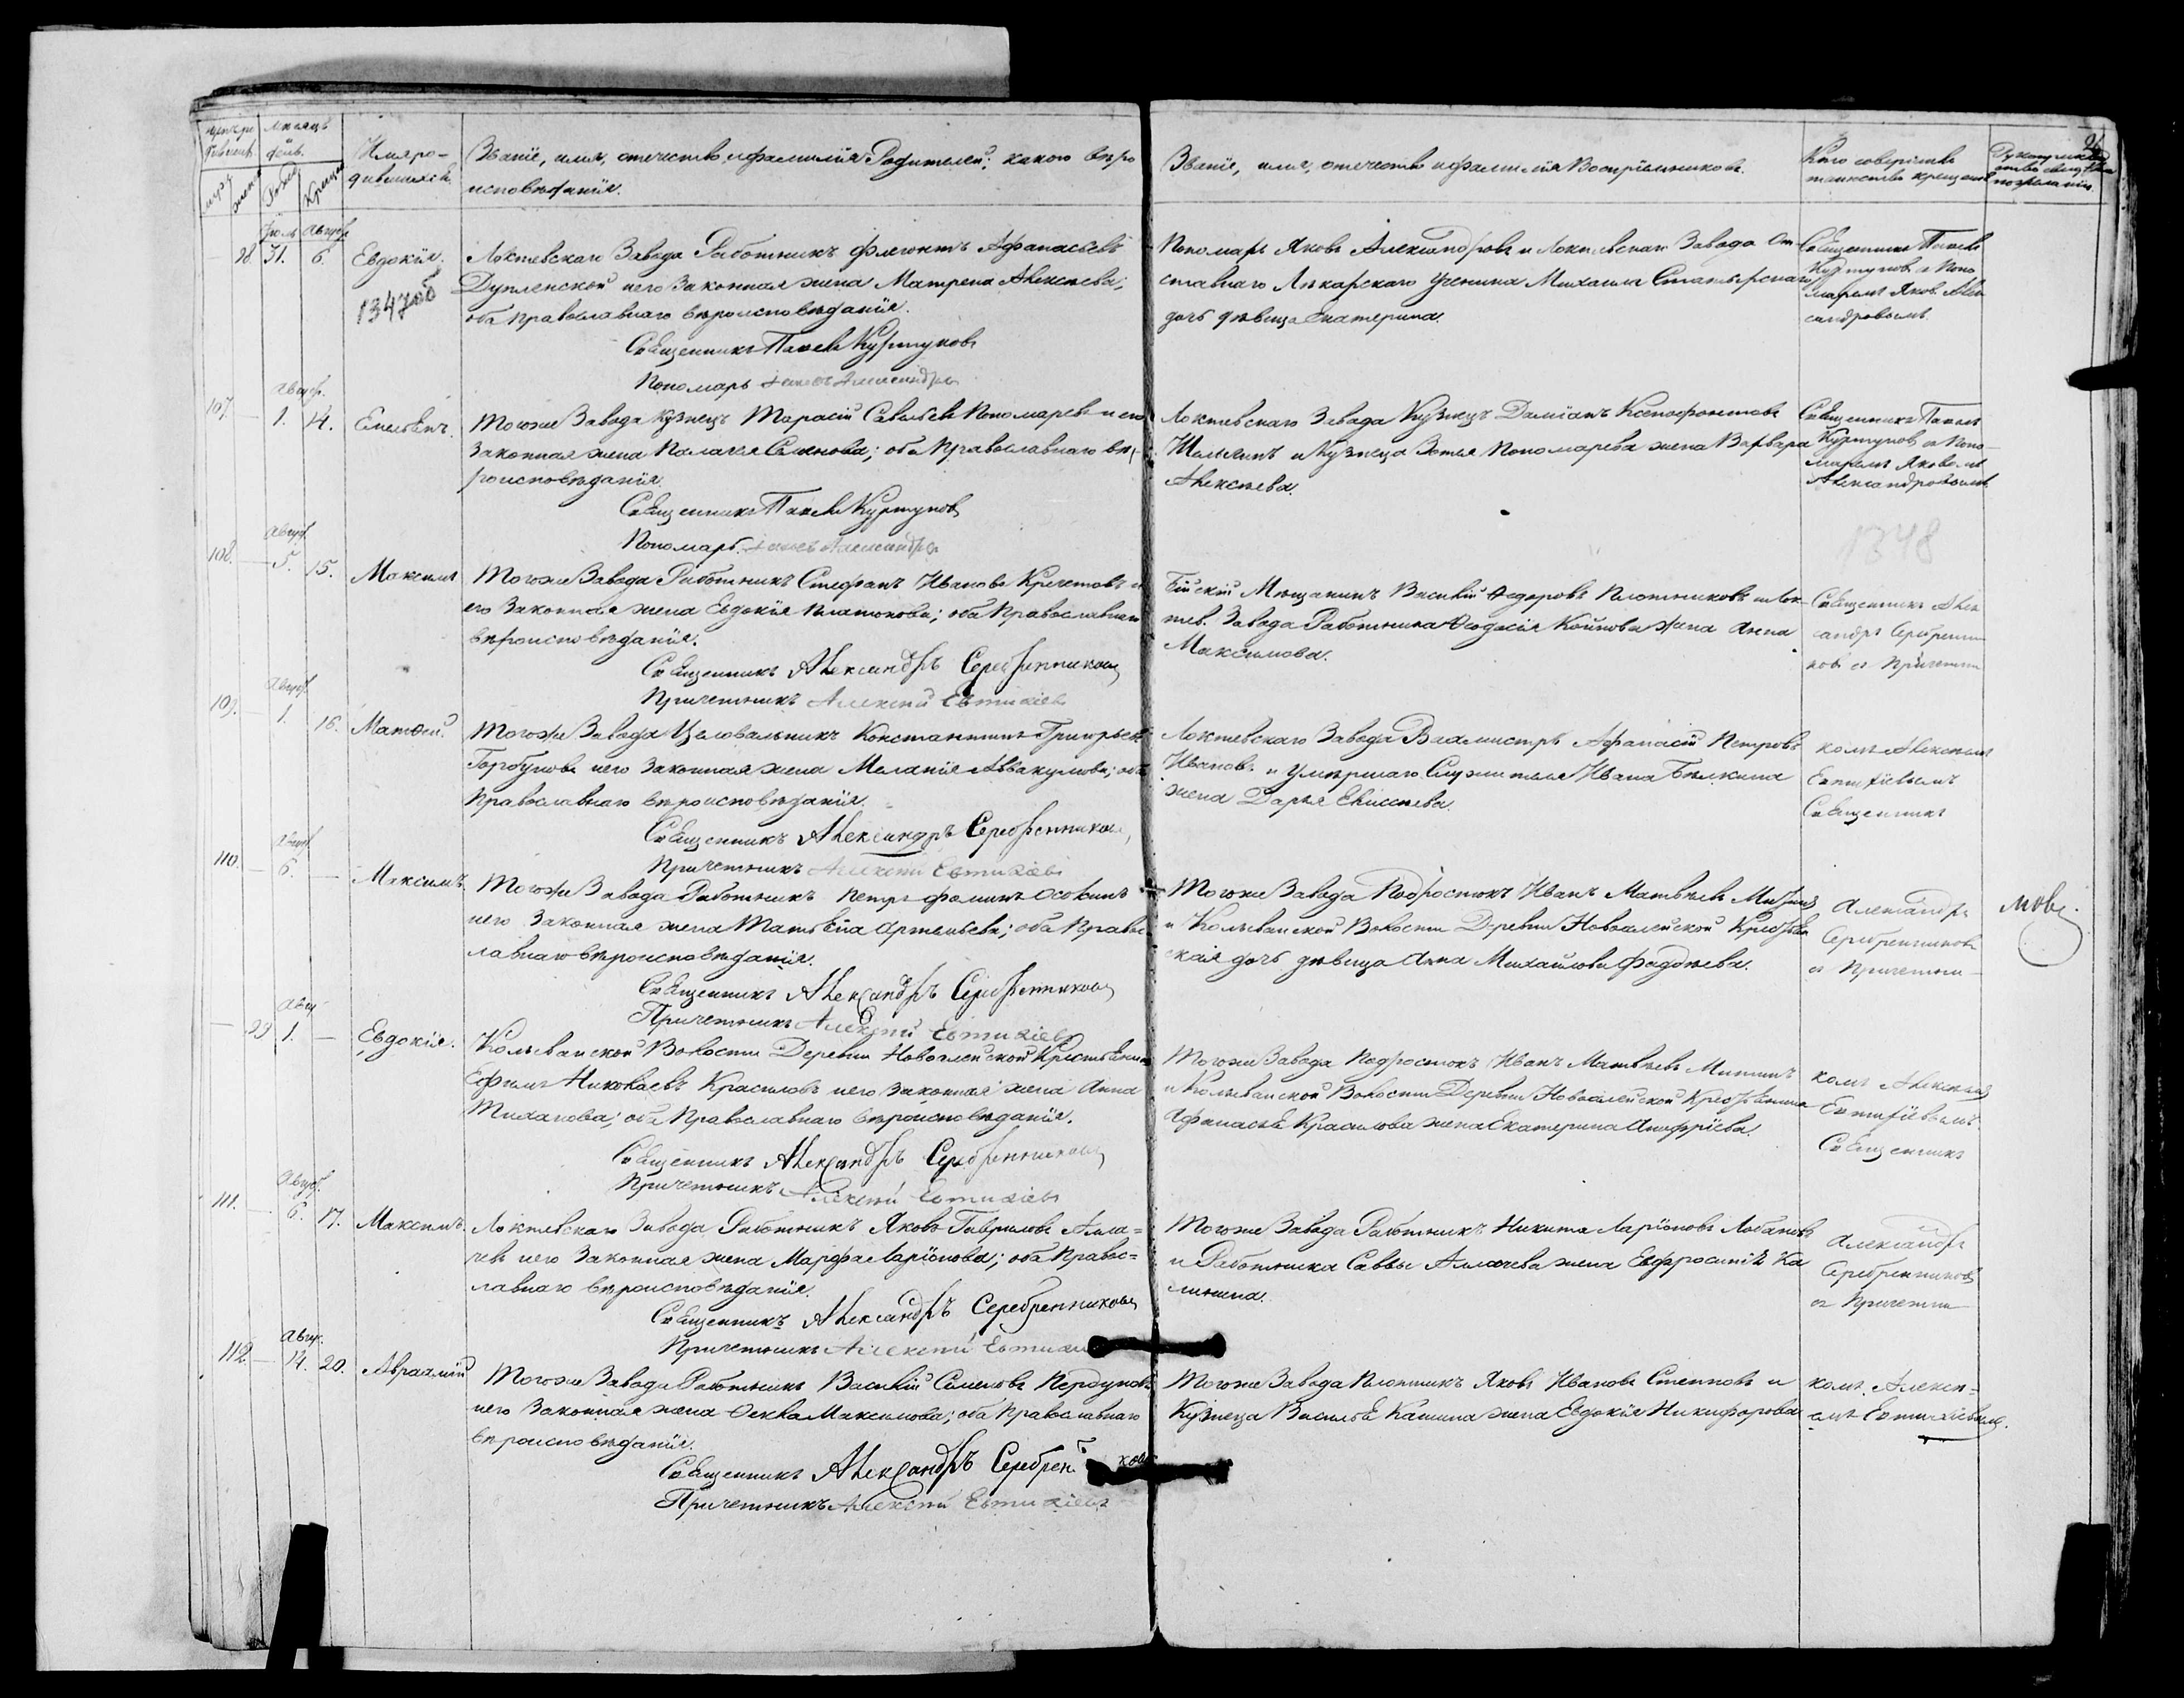 Имя ро-
дившихся.
Званіе, имя, отечество, и фамилія Родителей; какого веро
исповеданія.
Званіе, имя, отечество и фамилія Воспріемниковъ.
Кто совершалъ
таинство крещенія
Іюль Август.
38. 31. 6. Евдокія.
1347
Локтевскаго Завода Работникъ Флегонтъ Афанасьевъ
его Законная жена Матрена Алексеева;
оба православнаго вероисповеданія.
Священникъ Павелъ Куртуковъ
Пономарь Іаковъ Александровъ
Пономарь Яковъ Александровъ и Локтевскаго Завода От-
ставнаго Лекарскаго ученика Михаила
дочь девица Екатерина.
Священникъ Павелъ
Куртуковъ съ Поно
маремъ Яков. Алек
сандровымъ.
Август.
107. 1. 14. Емельянъ.
Тогоже Завода Кузнецъ Тарасій Савельевъ Пономаревъ и его
Законная жена Палагея Семенова; оба Православнаго ве-
роисповеданія.
Священникъ Павелъ Куртуковъ
Пономарь Іаковъ Александровъ
Локтевскаго Завода Кузнецъ Даміанъ Ксенофонтовъ
и Кузнеца Зотея Пономарева жена Варвара
Алексеева.
Священникъ Павелъ
Куртуковъ съ Поно-
маремъ Яковомъ
Александровымъ
1348
Август.
108. 5. 15. Максимъ
Тогоже Завода Работникъ Стефанъ Ивановъ Кречетовъ и
его Законная жена Евдокія Платонова; оба Православнаго
вероисповеданія.
Священникъ Александръ Серебренниковъ
Причетникъ Алексей Евтихіевъ
Бійскій Мещанинъ Василій Федоровъ Плотниковъ и Лок-
тев. Завода Работника Феодосія Койнова жена Анна
Максимова.
Священникъ Алек
сандръ Серебренни
ковъ съ Причетни
Август.
109. 1. 16. Матфей.
Тогоже Завода Целовальникъ Константинъ Григорьевъ
Горбуновъ и его Законная жена Меланія Аввакумова; оба
Православнаго вероисповеданія.
Священникъ Александръ Серебренниковъ
Причетникъ Алексей Евтихіевъ
Локтевскаго Завода Вахмистръ Афанасій Петровъ
Ивановъ и умершаго Служителя Ивана Белкина
жена Дарья Елисеева.
комъ Алексеемъ
Евтихіевымъ
Священникъ
Август.
110. 6. Максимъ
Тогоже Завода Работникъ Петръ Фоминъ Осокинъ
и его Законная жена Матвеиа Артемьева; оба Правос
лавнаго вероисповеданія.
Священникъ Александръ Серебренниковъ
Причетникъ Алексей Евтихіевъ
Тогоже Завода Подростокъ Иванъ Матвеевъ
и Колыванской Волости Деревни Новоалейской Крестьян
ская дочь девица Анна Михайлова Фадеева.
Александръ
Серебренниковъ
съ Причетни-
Авгу
39 1. Евдокія.
Колыванской Волости Деревни Новоалейской Крестьянинъ
Ефимъ Николаевъ Красиловъ и его законная жена Анна
оба Православнаго вероисповеданія.
Священникъ Александръ Серебренниковъ
Причетникъ Алексей Евтихіевъ
Тогоже Завода Подростокъ Иванъ Матвеевъ
и Колыванской Волости Деревни Новоалейской Крестьянина
Афанасья Красилова жена Екатерина Ануфріева.
комъ Алексеемъ
Евтихіевымъ.
Священникъ
Август.
111. 6. 17. Максимъ.
Локтевскаго Завода Работникъ Яковъ Гавриловъ
и его Законная жена Марфа Ларіонова; оба Правос=
лавнаго вероисповеданія.
Священникъ Александръ Серебренниковъ
Причетникъ Алексей
Тогоже Завода Работникъ Никита Ларіоновъ Лобановъ
и Работника Саввы жена Евфросинія Ка
линина.
Александръ
Серебренниковъ
съ Причетни
Авгу.
112. 14. 20. Авраамій
Тогоже Завода Работникъ Василій Семеновъ
и его Законная жена Фекла Максимова; оба Православнаго
вероисповеданія.
Священникъ Александръ Серебрен ковъ
Причетникъ Алексей Евтихіевъ
Тогоже Завода Плотникъ Яковъ Ивановъ и
Кузнеца Василья Кашина жена Евдокія Никифорова
комъ Алексе=
емъ Евтихіевымъ.